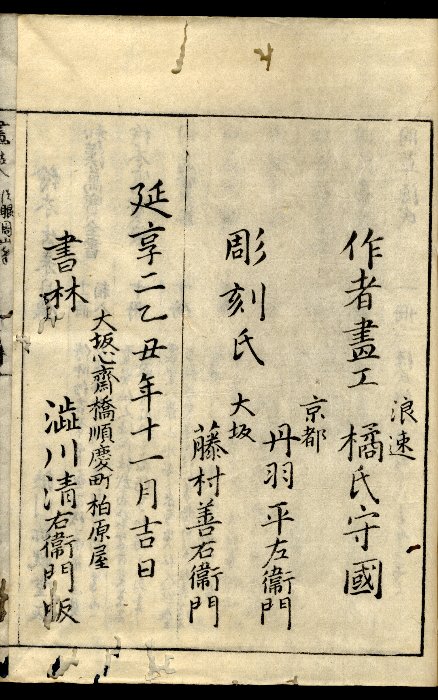 浪速
作者畫工 橘氏守國
京都
彫刻氏 丹羽平左衞門
大坂
藤村善右衞門
延享二乙丑年十一月吉日
大坂心齋橋順慶町柏原屋
書林 澁川清右衞門版